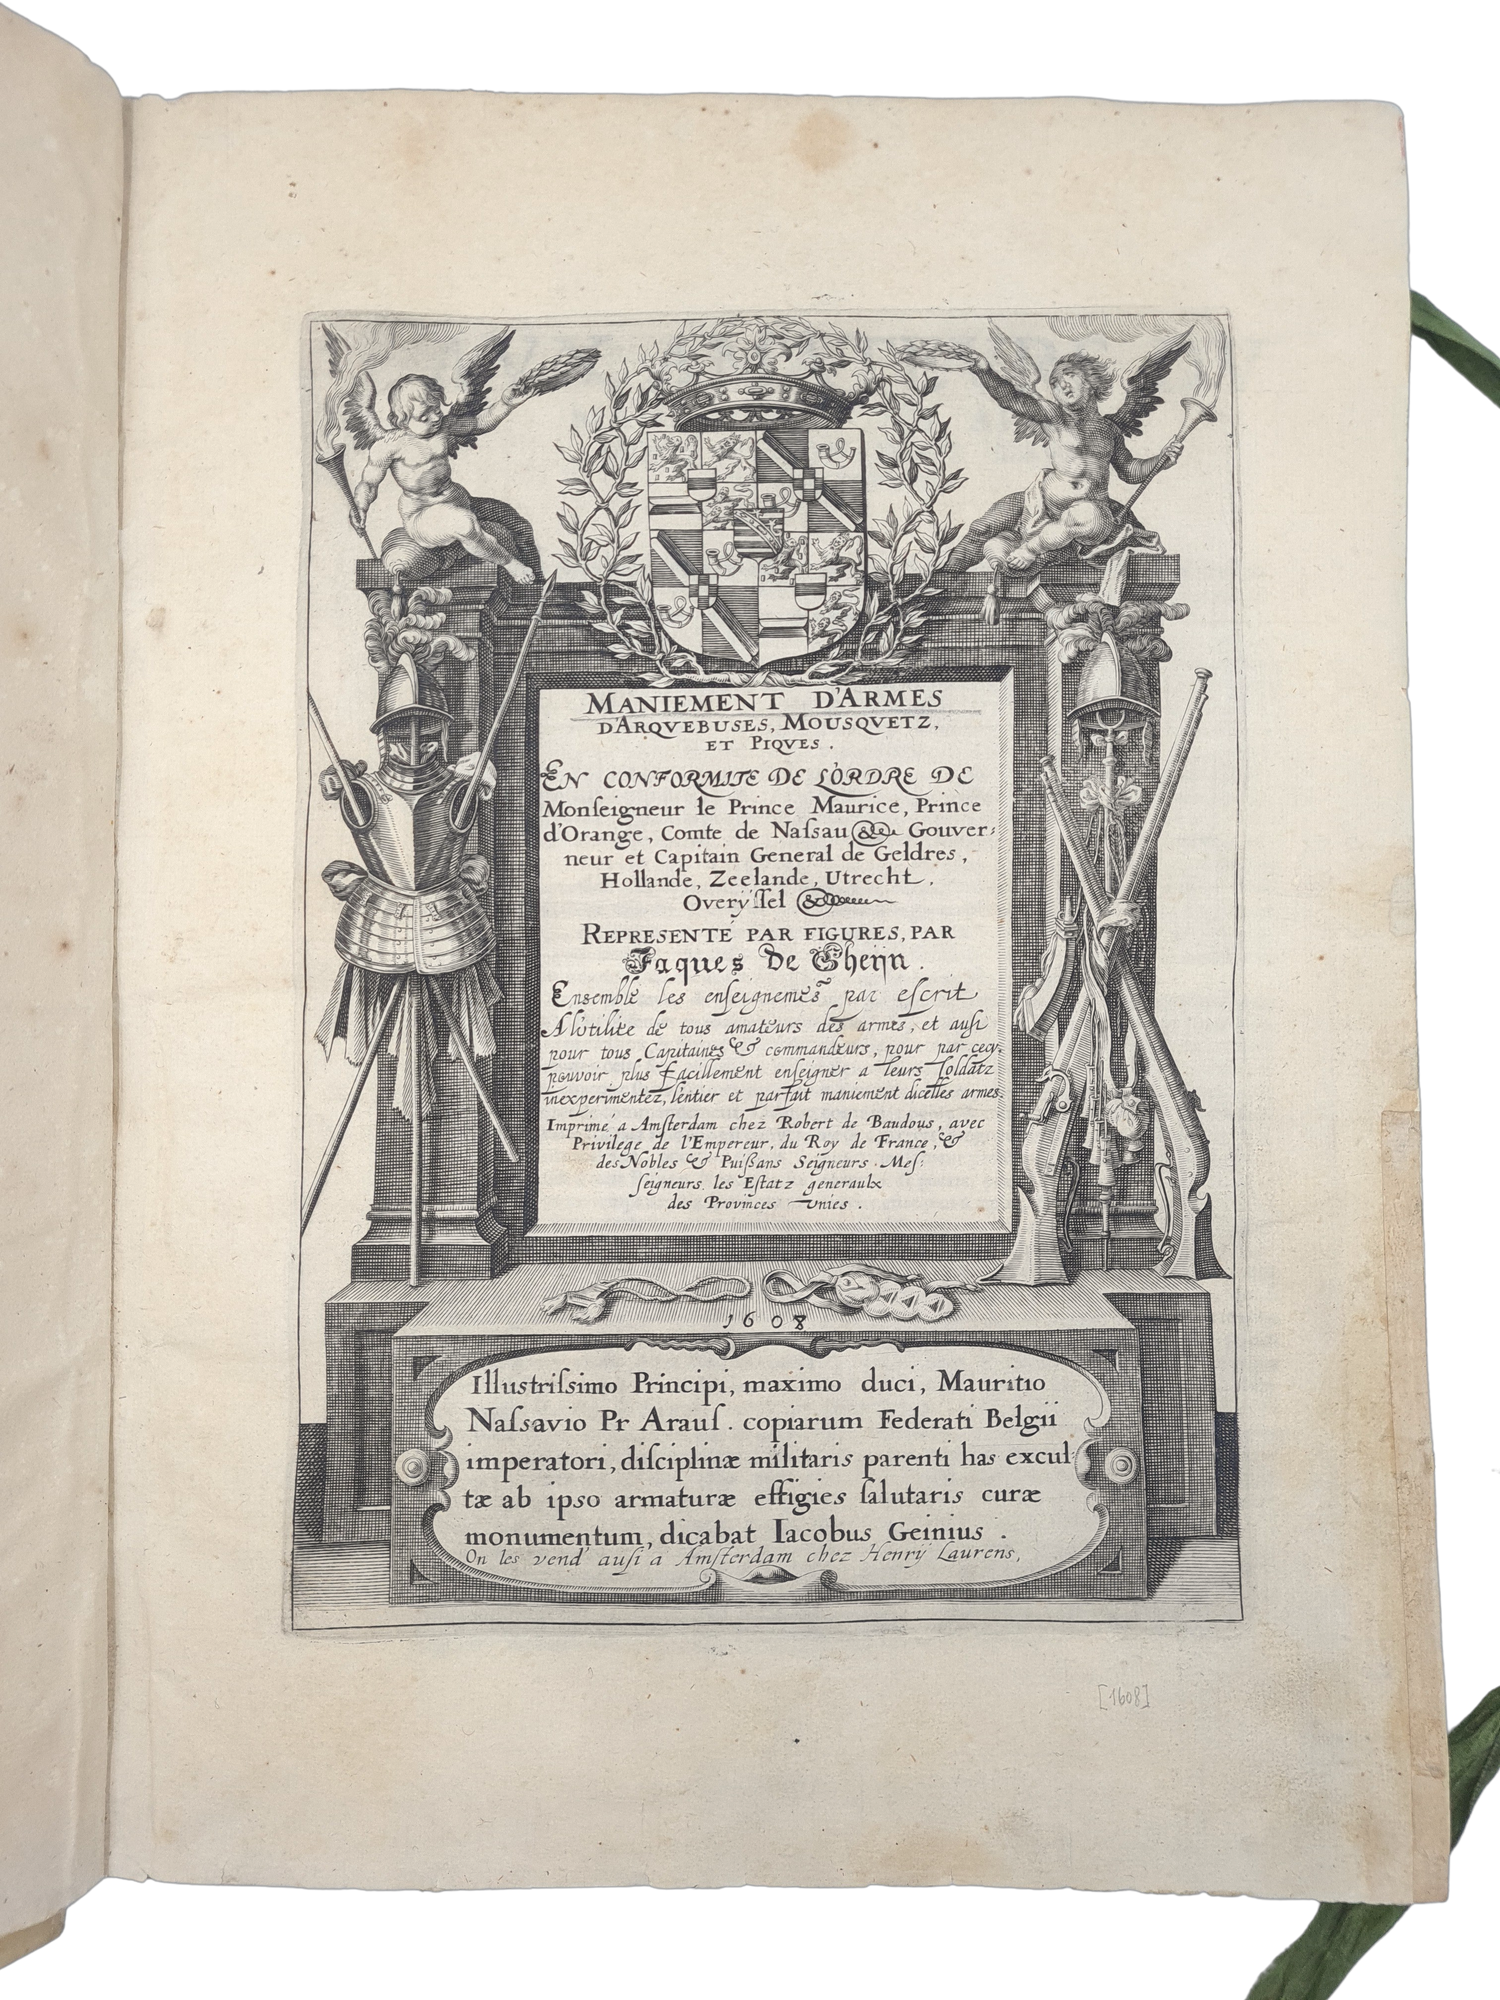 MANIEMENT D'ARMES
D'ARQVEBUSES, MOUSQVETZ,
ET PIQVES.
EN CONFORMITE DE L'ORDRE DE
Monſeigneur le Prince Maurice, Prince
d'Orange, Comte de Naſsau &c. Gouver:
neur et Capitain General de Geldres,
Hollande, Zeelande, Utrecht,
Overÿſſel &c.
REPRESENTÉ PAR FIGURES, PAR
Jaques de Gheÿn.
Ensemble les enſeignemēs par eſcrit
A l'utilite de tous amateurs des armes, et auſi
pour tous Capitaines & commandeurs, pour par cecy,
pouvoir plus facillement enſeigner a leurs ſoldatz
inexperimentez, l'entier et parfait maniement dicelles armes.
Imprimé a Amſterdam chez Robert de Baudous, avec
Privilege de l'Empereur, du Roy de France, &
des Nobles & Puiſsans Seigneurs Meſ:
ſeigneurs les Eſtatz generaulx
des Provinces Unies.
1608
Illustriſsimo Principi, maximo duci, Mauritio
Naſsavio Pr Arauſ. copiarum Federati Belgii
imperatori, diſciplinæ militaris parenti has excul:
tæ ab ipso armaturæ effigies ſalutaris curæ
monumentum, dicabat Iacobus Geinius.
On les vend auſi a Amſterdam chez Henrÿ Laurens,
[1608]